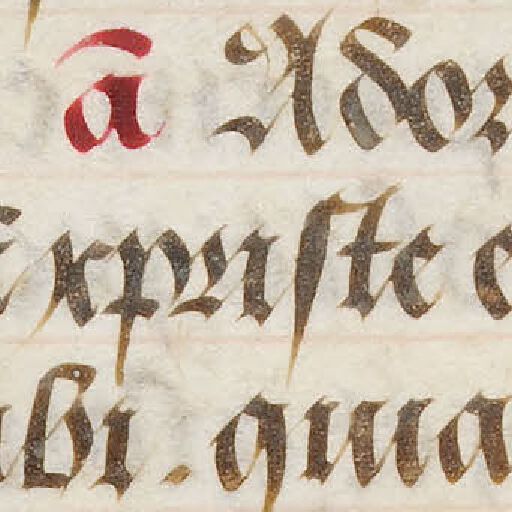 ā Ador
xpriſte e
bi. qma